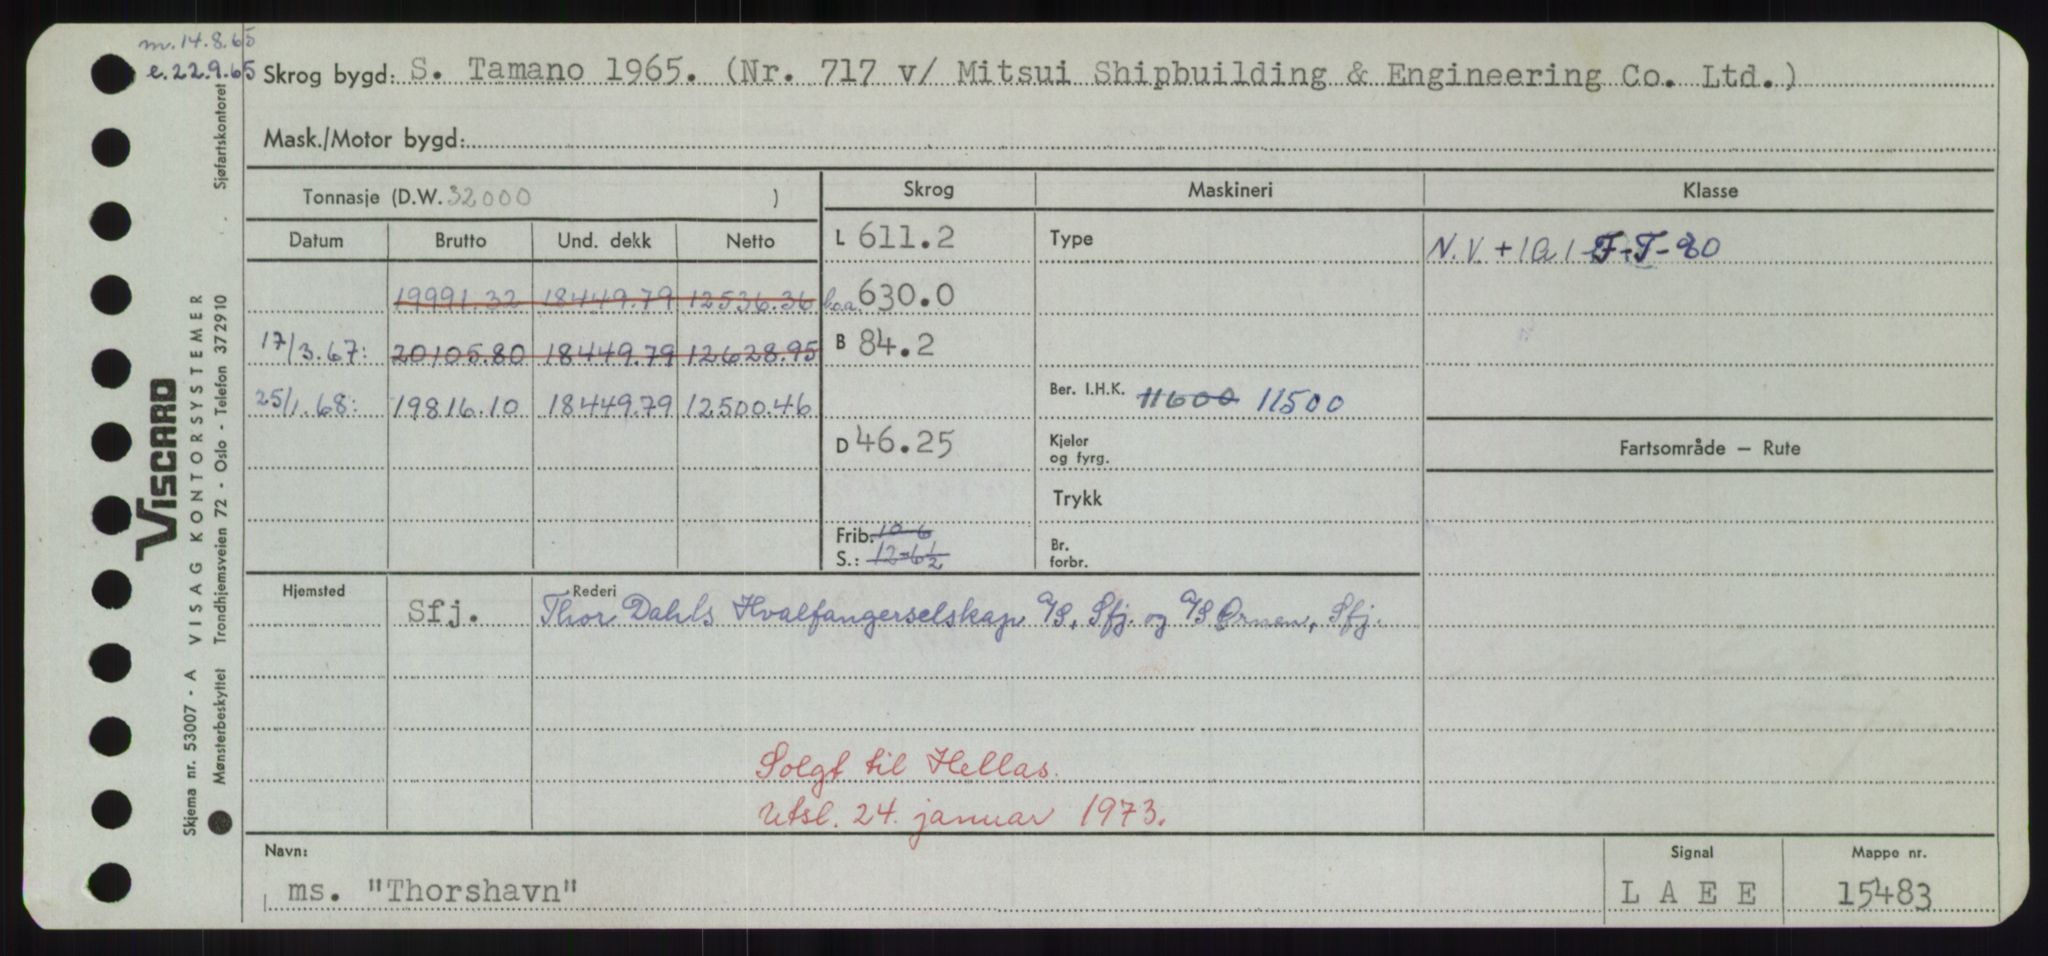 m. 14.8.65
e. 22.9.65
Skrog bygd: S. Tamano 1965. (Nr. 717 v/ Mitsui Shipbuilding & Engineering Co. Ltd.)
Mask./Motor bygd:
Tonnasje (D.W. 32000 )
Skrog Maskineri Klasse
Datum Brutto Und. dekk Netto
L 611.2 Type N.V. + 1A1 F-T-80
19991.32 18449.79 12536.36 l.o.a. 630.0
17/3.67: 20105.80 18449.79 12628.95 B 84.2
25/1.68: 19816.10 18449.79 12500.46 Ber. I.H.K. 11600 11500
D 46.25 Kjeler og fyrg. Fartsområde — Rute
Trykk
Frib. 10-6 Br. forbr.
S.: 12-6½
Hjemsted Rederi
Sfj. Thor Dahls Hvalfangerselskap A/S, Sfj. og A/S Ørnen, Sfj.
Solgt til Hellas.
Utsl. 24. januar 1973.
Navn: Signal Mappe nr.
ms. "Thorshavn" L A E E 15483
VISCARD
Skjema nr. 53007 - A VISAG KONTORSYSTEMER
Mønsterbeskyttet Trondhjemsveien 72 - Oslo - Telefon 372910 Sjøfartskontoret